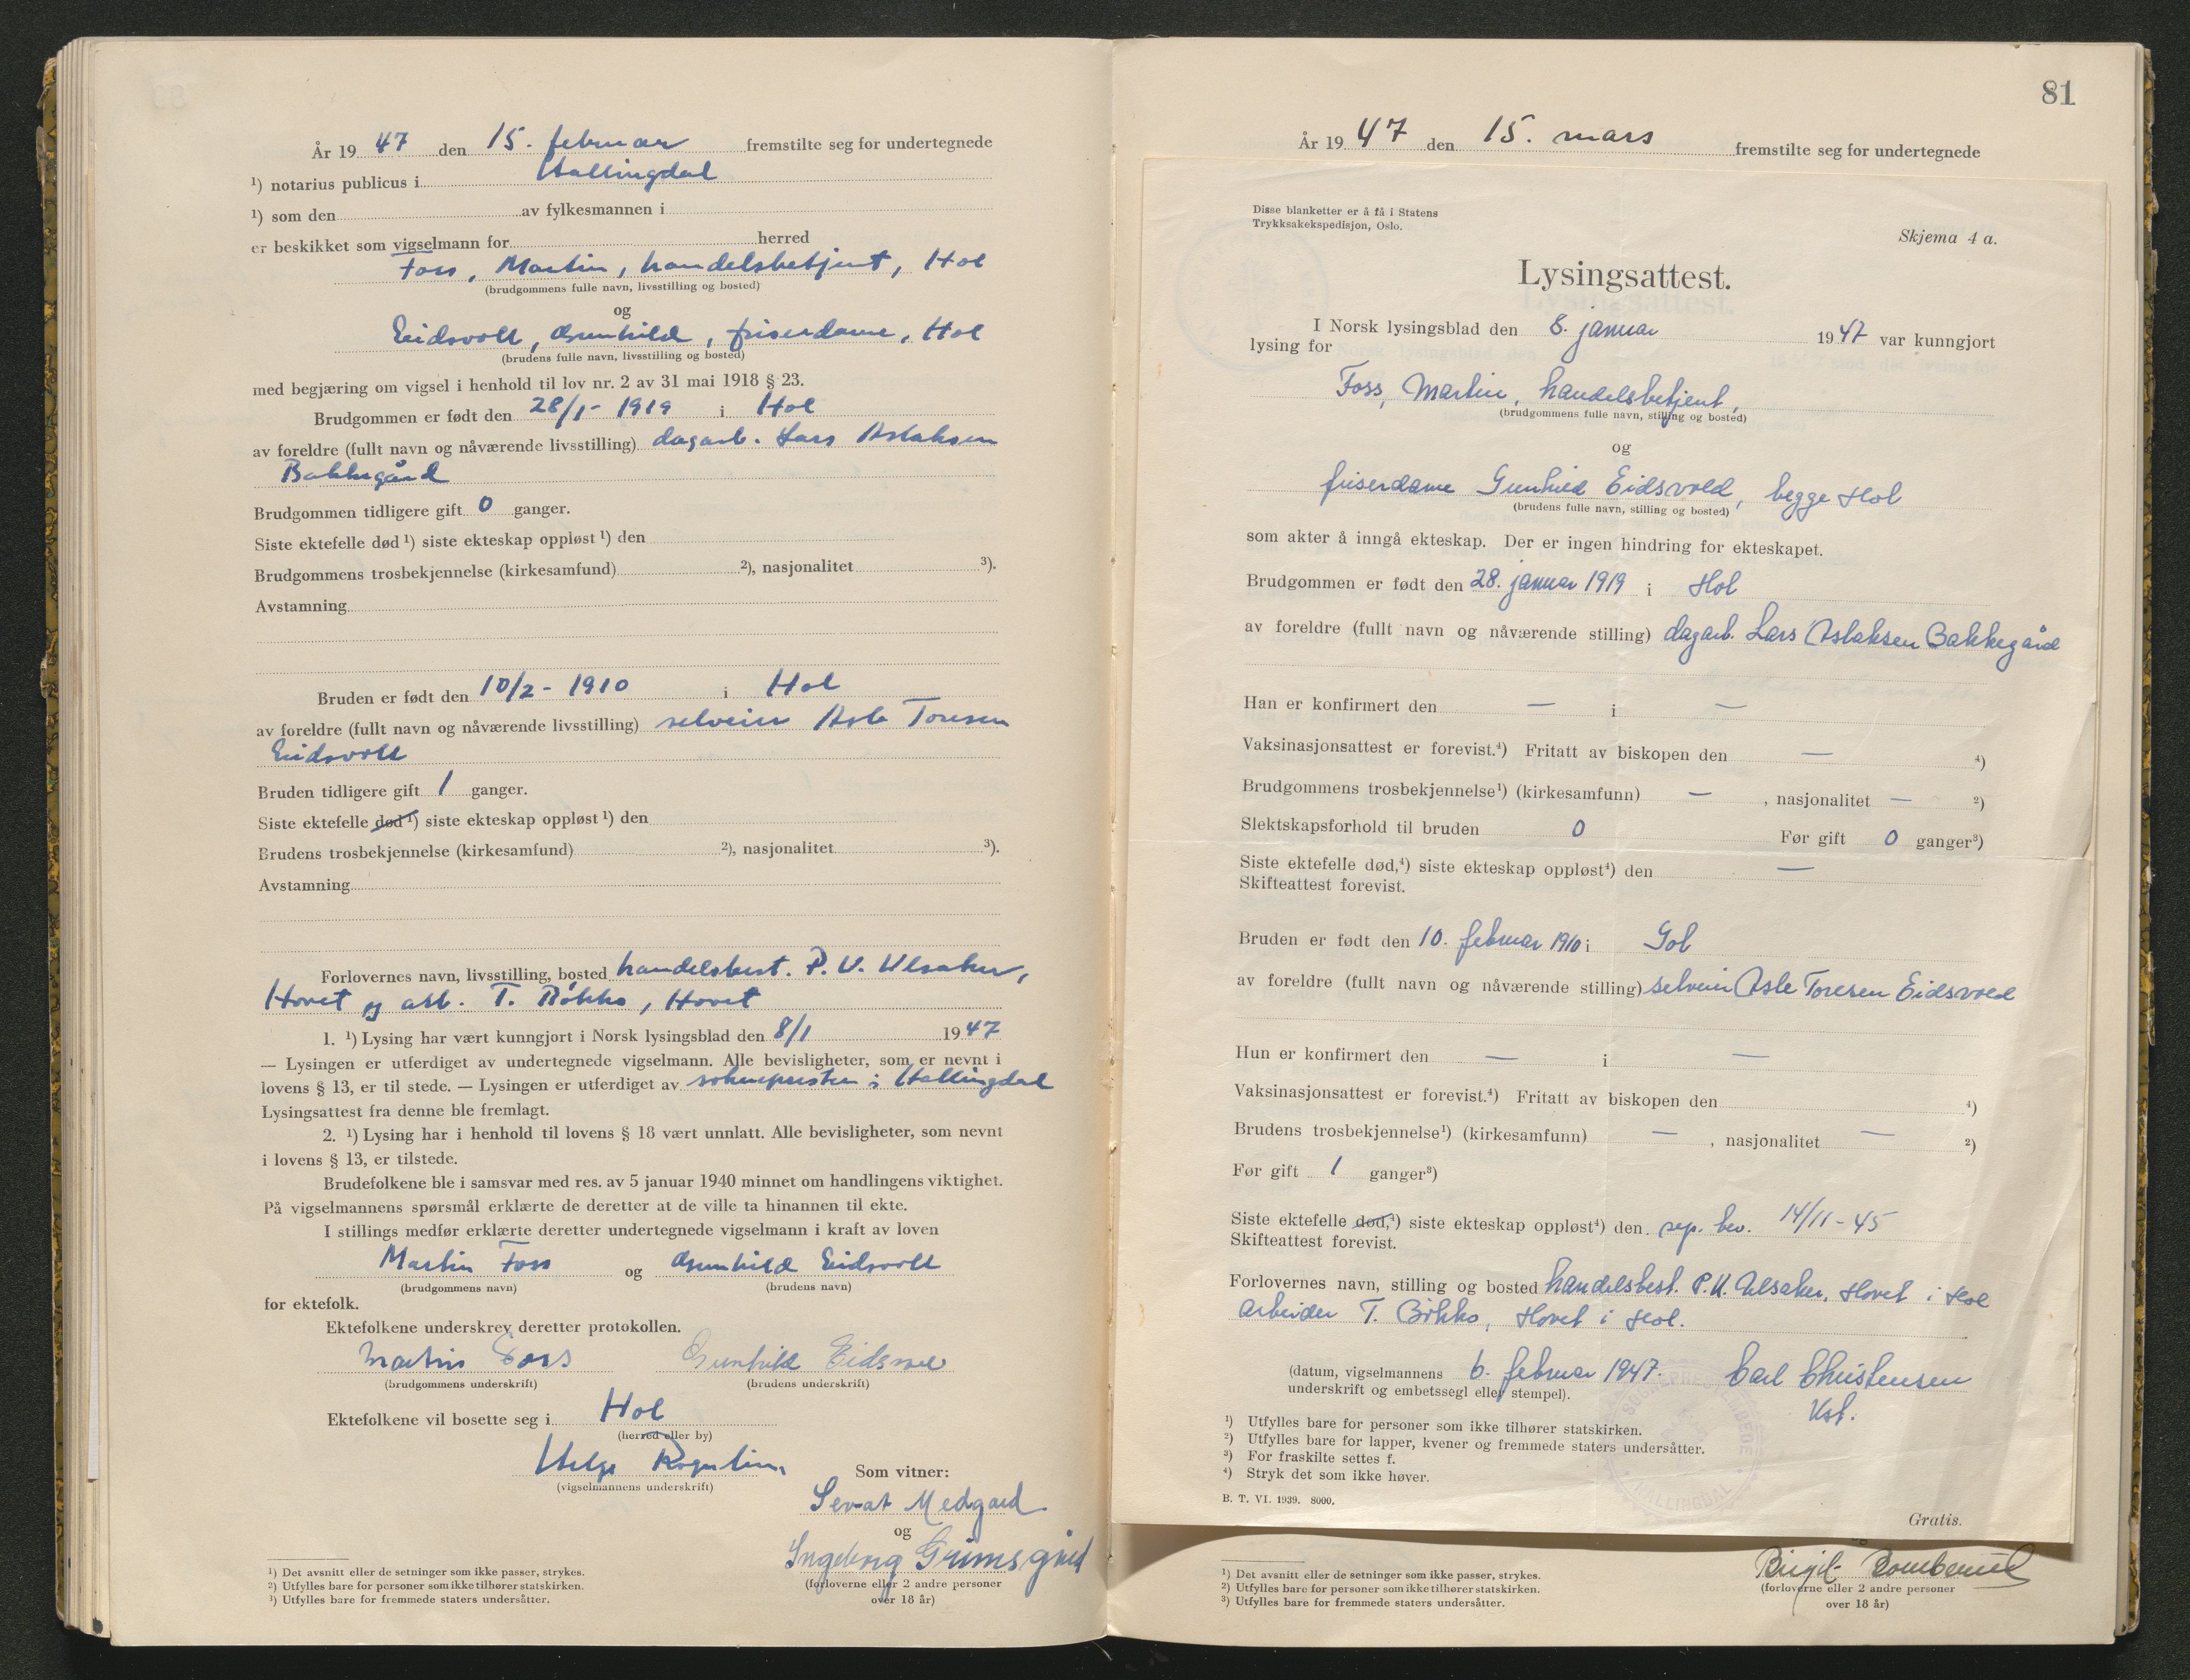 År 1947 den 15. februar fremstilte seg for undertegnede
¹) notarius publicus i Hallingdal
¹) som den av fylkesmannen i
er beskikket som vigselmann for herred
Foss, Martin, handelsbetjent, Hol
(brudgommens fulle navn, livsstilling og bosted)
og
Eidsvoll, Gunhild, friserdame, Hol
(brudens fulle navn, livsstilling og bosted)
med begjæring om vigsel i henhold til lov nr. 2 av 31 mai 1918 § 23.
Brudgommen er født den 28/1 - 1919 i Hol
av foreldre (fullt navn og nåværende livsstilling) dagarb. Lars Aslaksen
Bakkegård
Brudgommen tidligere gift 0 ganger.
Siste ektefelle død ¹) siste ekteskap oppløst ¹) den
Brudgommens trosbekjennelse (kirkesamfund) ²), nasjonalitet ³).
Avstamning
Bruden er født den 10/2 - 1910 i Hol
av foreldre (fullt navn og nåværende livsstilling) selveier Asle Toresen
Eidsvoll
Bruden tidligere gift 1 ganger.
Siste ektefelle død ¹) siste ekteskap oppløst ¹) den
Brudens trosbekjennelse (kirkesamfund) ²), nasjonalitet ³).
Avstamning
Forlovernes navn, livsstilling, bosted handelsbest. P. U. Ulsaker,
Hovet og arb. T. Bökko, Hovet
1. ¹) Lysing har vært kunngjort i Norsk lysingsblad den 8/1 1947
— Lysingen er utferdiget av undertegnede vigselmann. Alle bevisligheter, som er nevnt i
lovens § 13, er til stede. — Lysingen er utferdiget av soknepresten i Hallingdal
Lysingsattest fra denne ble fremlagt.
2. ¹) Lysing har i henhold til lovens § 18 vært unnlatt. Alle bevisligheter, som nevnt
i lovens § 13, er tilstede.
Brudefolkene ble i samsvar med res. av 5 januar 1940 minnet om handlingens viktighet.
På vigselmannens spørsmål erklærte de deretter at de ville ta hinannen til ekte.
I stillings medfør erklærte deretter undertegnede vigselmann i kraft av loven
Martin Foss og Gunhild Eidsvoll
(brudgommens navn) (brudens navn)
for ektefolk.
Ektefolkene underskrev deretter protokollen.
Martin Foss Gunhild Eidsvoll
(brudgommens underskrift) (brudens underskrift)
Ektefolkene vil bosette seg i Hol
(herred eller by)
Helge
(vigselmannens underskrift)
Som vitner:
Sevat Medgard
og
Ingeborg Grimsgård
(forloverne eller 2 andre personer
over 18 år)
¹) Det avsnitt eller de setninger som ikke passer, strykes.
²) Utfylles bare for personer som ikke tilhører statskirken.
³) Utfylles bare for fremmede staters undersåtter.
81
År 1947 den 15. mars fremstilte seg for undertegnede
Disse blanketter er å få i Statens
Trykksakekspedisjon, Oslo.
Skjema 4 a.
Lysingsattest.
I Norsk lysingsblad den 8. januar 1947 var kunngjort
lysing for
Foss, Martin, handelsbetjent,
(brudgommens fulle navn, stilling og bosted)
og
friserdame Gunhild Eidsvold, begge Hol
(brudens fulle navn, stilling og bosted)
som akter å inngå ekteskap. Der er ingen hindring for ekteskapet.
Brudgommen er født den 28. januar 1919 i Hol
av foreldre (fullt navn og nåværende stilling) dagarb. Lars Aslaksen Bakkegård
Han er konfirmert den — i —
Vaksinasjonsattest er forevist.⁴) Fritatt av biskopen den — ⁴)
Brudgommens trosbekjennelse¹) (kirkesamfunn) — , nasjonalitet — ²)
Slektskapsforhold til bruden 0 Før gift 0 ganger³)
Siste ektefelle død,⁴) siste ekteskap oppløst⁴) den —
Skifteattest forevist.
Bruden er født den 10. februar 1910 i Gol
av foreldre (fullt navn og nåværende stilling) selveier Asle Toresen Eidsvold
Hun er konfirmert den — i —
Vaksinasjonsattest er forevist.⁴) Fritatt av biskopen den ⁴)
Brudens trosbekjennelse¹) (kirkesamfunn) — , nasjonalitet — ²)
Før gift 1 ganger³)
Siste ektefelle død,⁴) siste ekteskap oppløst⁴) den sep. bev. 14/11 - 45
Skifteattest forevist.
Forlovernes navn, stilling og bosted handelsbest. P. U. Ulsaker, Hovet i Hol
arbeider T. Bökko, Hovet i Hol.
(datum, vigselmannens 6. februar 1947. Carl Christensen
underskrift og embetssegl eller stempel). Kst.
SOGNEPRESTEMBEDE
HALLINGDAL
¹) Utfylles bare for personer som ikke tilhører statskirken.
²) Utfylles bare for lapper, kvener og fremmede staters undersåtter.
³) For fraskilte settes f.
⁴) Stryk det som ikke høver.
B. T. VI. 1939. 8000.
Gratis.
Birgit
(forloverne eller 2 andre personer
over 18 år)
¹) Det avsnitt eller de setninger som ikke passer, strykes.
²) Utfylles bare for personer som ikke tilhører statskirken.
³) Utfylles bare for fremmede staters undersåtter.